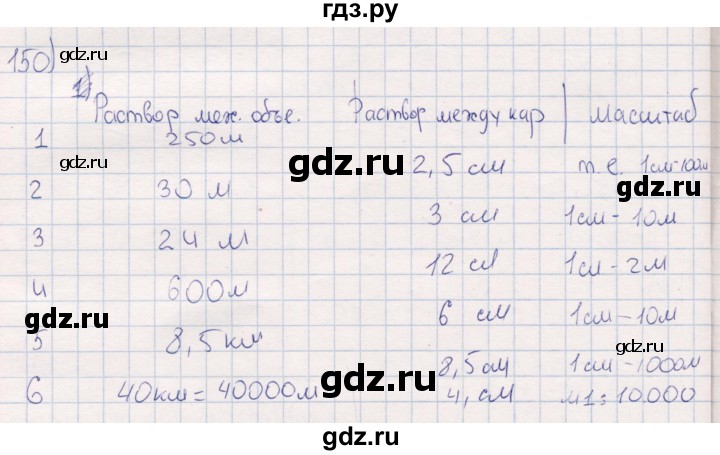 гдз.ру
150)
1)
Раствор меж. объе. Раствор между кар | Масштаб
1 250м 2,5 см т.е. 1см-100м
2 30 м 3 см 1см - 10м
3 24 м 12 см 1см - 2м
4 600м 6 см 1см - 10м
5 8,5км 8,5см 1см - 1000м
6 40км = 40000м 4, см м1:10.000
gdz.ru
gdz.ru
gdz.ru
gdz.ru
gdz.ru
gdz.ru
gdz.ru
gdz.ru
gdz.ru
gdz.ru
gdz.ru
gdz.ru
gdz.ru